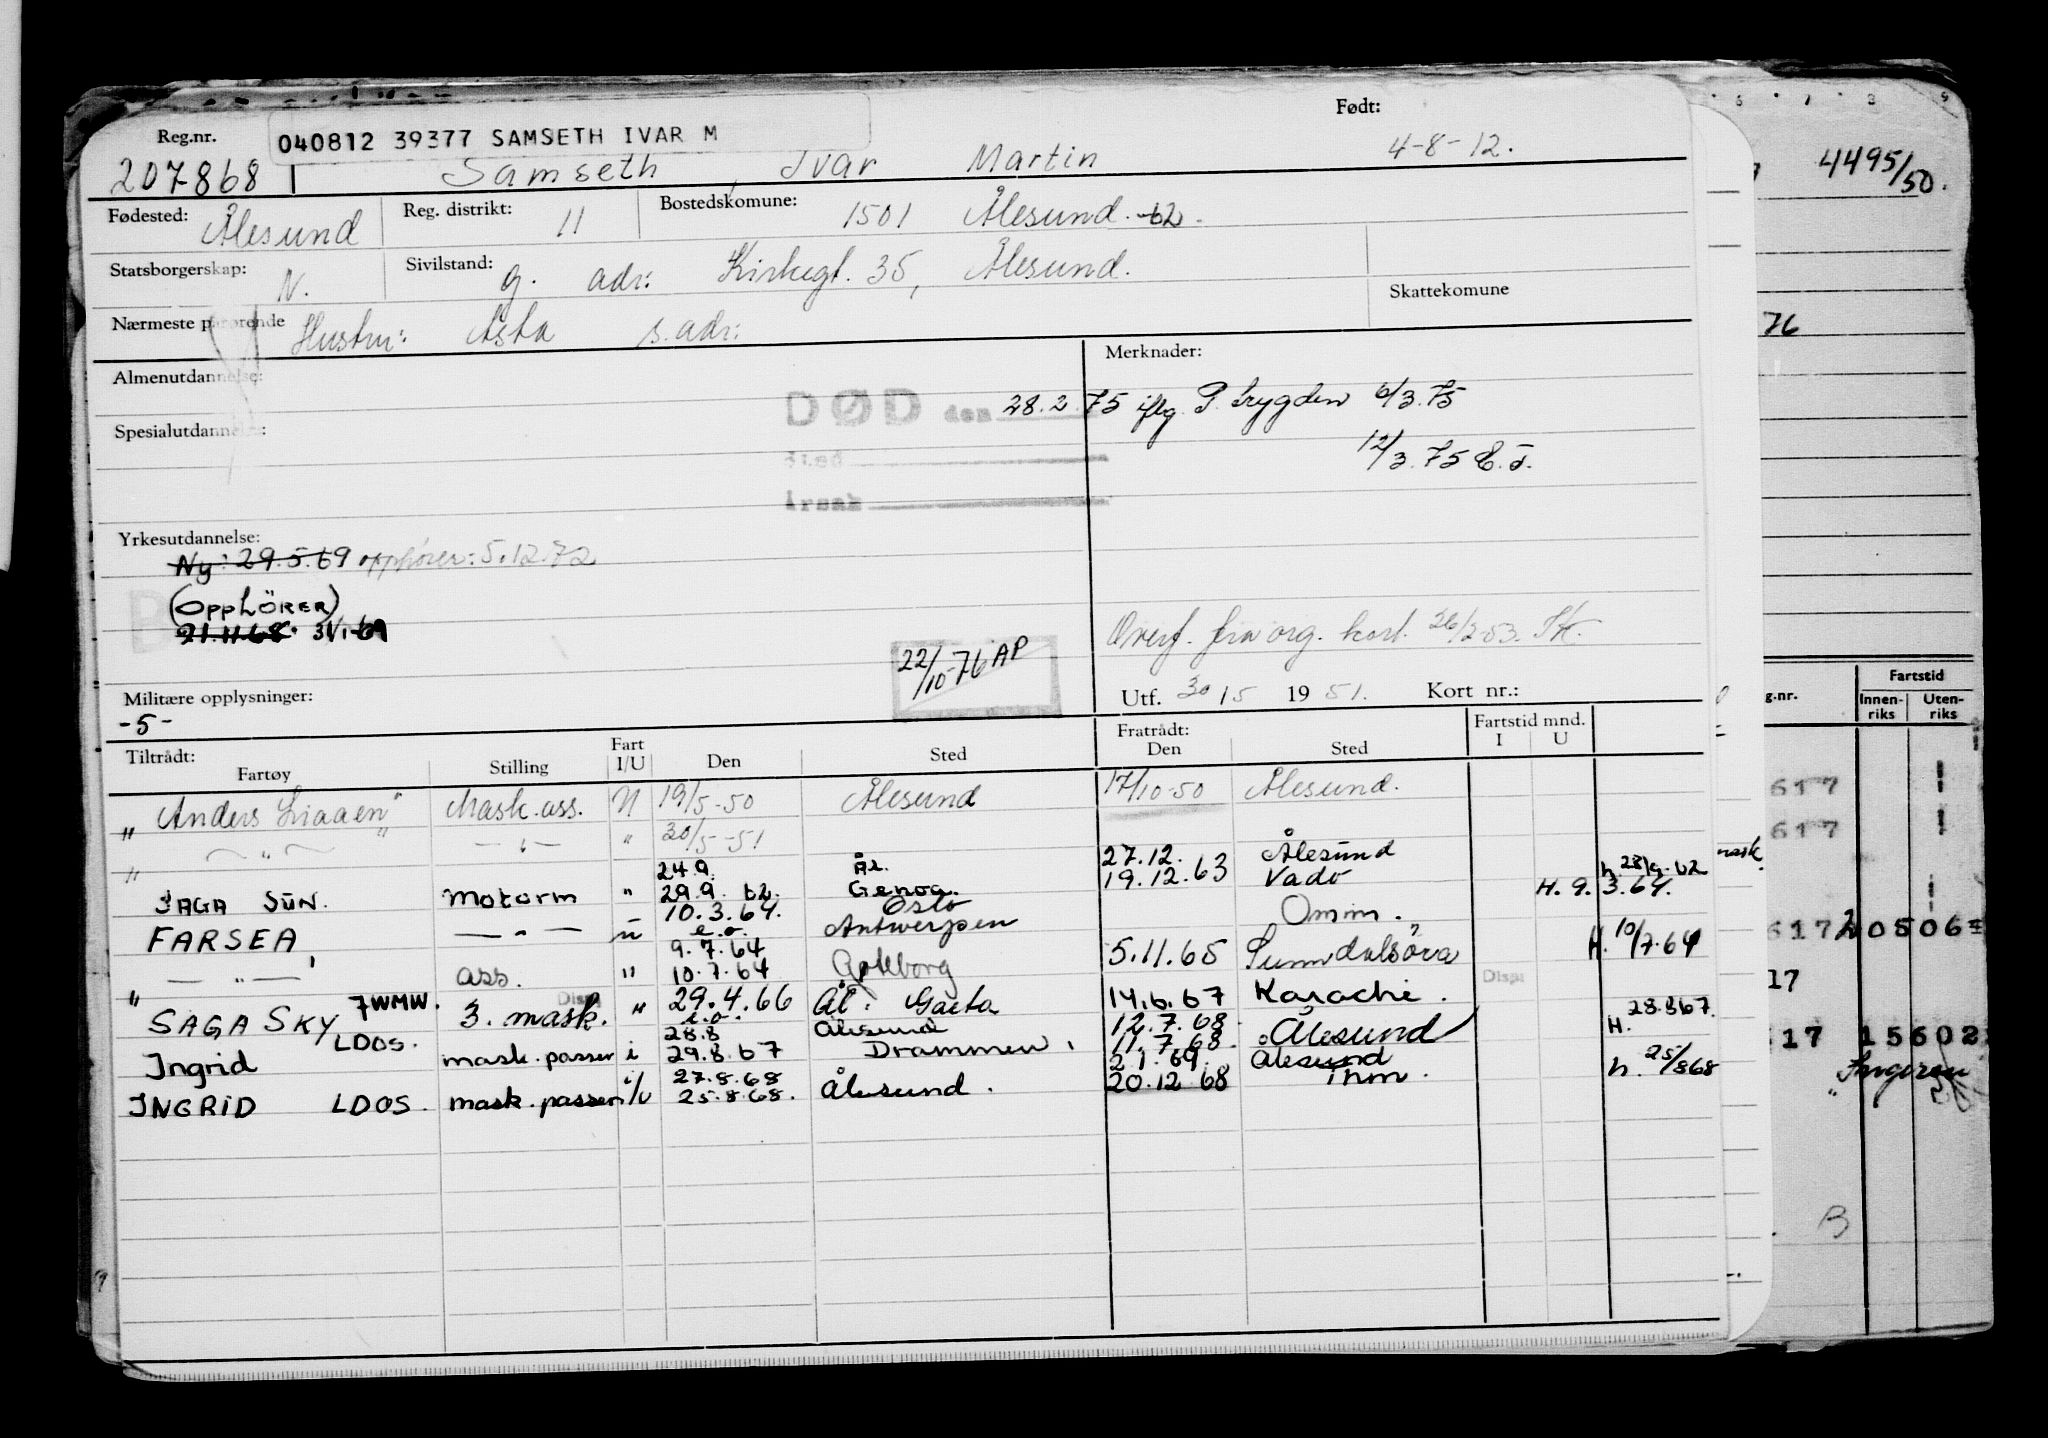 Reg.nr. 040812 39377 SAMSETH IVAR M Født:
207868 Samseth, Ivar Martin 4-8-12.
4495/50.
Fødested: Ålesund Reg. distrikt: 11 Bostedskomune: 1501 Ålesund. 62.
Statsborgerskap: N. Sivilstand: g. adr: Kirkegt. 35, Ålesund.
Skattekomune
Nærmeste pårørende Hustru: Asta s. adr:
76
Almenutdannelse: Merknader:
DØD den 28.2 75 iflg. P. trygden 6/3.75
Spesialutdannelse: 12/3.75
Sted
Årsak
Yrkesutdannelse:
Ny: 29.5.69 opphører: 5.12.72
(OPPHÖRER)
21.11.68. 31/1-69
Overf. fra org. kort. 26/2-53. Sk.
22/10-76 AP
Militære opplysninger: Utf. 30/5 1951. Kort nr.:
-5-
g.nr. Fartstid
Innen-riks Uten-riks
Tiltrådt: Fartøy Stilling Fart I/U Den Sted Fratrådt: Den Sted Fartstid mnd. I U
"Anders Liaaen" Mask. ass. N 19/5-50 Ålesund 17/10-50 Ålesund.
617
" " - " - " 30/5-51
617
24.9. Ål. 27.12. Ålesund h. 28/9-62 mask.
SAGA SUN. Motorm " 29.9.62. Genoa. 19.12.63 Vado H. 9.3.64.
10.3.64. Oslo
FARSEA - " - u e.o. Antwerpen Omm. H. 10/7.64
617 20506
9.7.64
- " - ass. " 10.7.64 Gøteborg 5.11.65 Sunndalsöra Disp:
17
SAGA SKY 7WMW. 3. mask. Disp " 29.4.66 Ål: Gaeta 14.6.67 Karachi.
e.o. 12.7.68 H. 28.8.67.
28.8 Ålesund
Ingrid LDOS. mask. passer i 29.8.67 Drammen, 11.7.68. Ålesund
17 15602
27.8.68 2.1.69. Ålesund
INGRID LDOS. mask. passer i/U 25.8.68. Ålesund. 20.12.68 Thm. h. 25/868
B